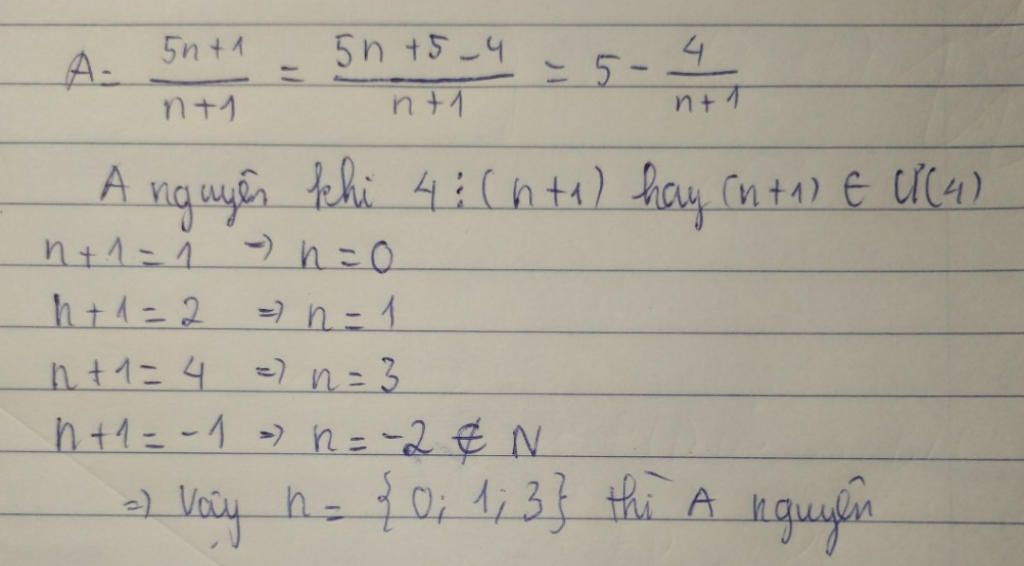 A = 5n+1/n+1 = 5n+5-4/n+1 = 5 - 4/n+1
A nguyên khi 4 ⋮ (n+1) hay (n+1) ∈ Ư(4)
n+1 = 1 → n = 0
n+1 = 2 => n = 1
n+1 = 4 => n = 3
n+1 = -1 => n = -2 ∉ N
=> Vậy n = {0; 1; 3} thì A nguyên